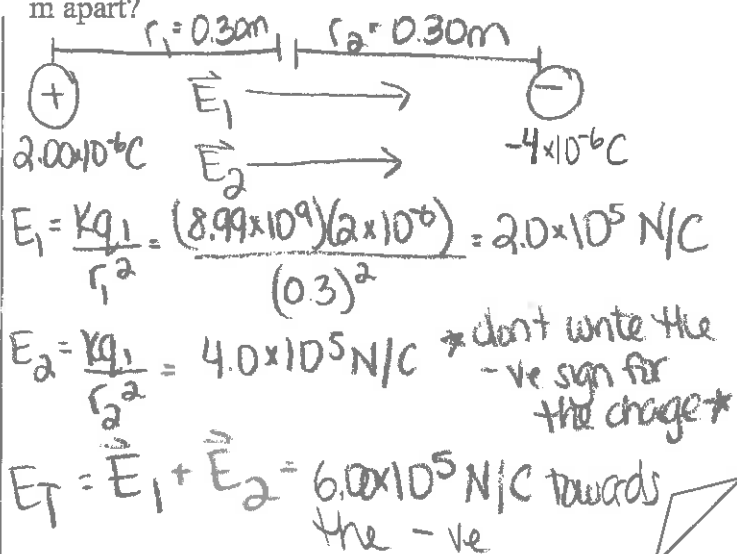 m apart?
r₁ = 0.30m r₂ = 0.30m
+ E⃗₁ −
2.00x10⁻⁶C E⃗₂ -4x10⁻⁶C
E₁ = Kq₁/r₁² = (8.99x10⁹)(2x10⁻⁶)/(0.3)² = 2.0x10⁵ N/C
E₂ = Kq₁/r₂² = 4.0x10⁵ N/C *dont write the
-ve sign for
the chage*
E_T = E⃗₁ + E⃗₂ = 6.00x10⁵ N/C towards
the -ve